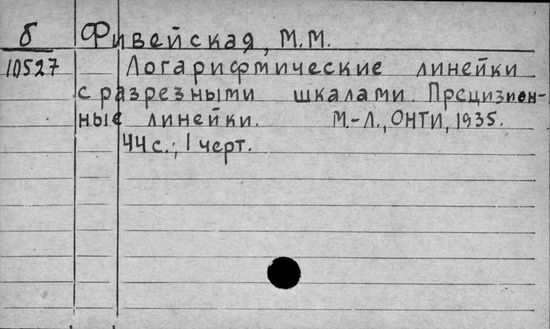 б Фивейская, М.М.
10527 Логарифмические линейки
с разрезными шкалами. Прецизион-
ные линейки. М.-Л., ОНТИ, 1935.
44 с.; 1 черт.